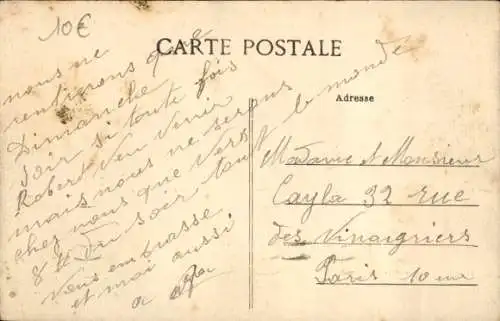 10€
CARTE POSTALE
Adresse
nous ne
rentrerons que
Dimanche
soir si toute fois
Robert veu venir
mais nous ne serons
chez nous que vers
8 h du soir tout le monde
vous embrasse
et moi aussi
a
Madame et Monsieur
Cayla 32 rue
des Vinaigriers
Paris 10 eme